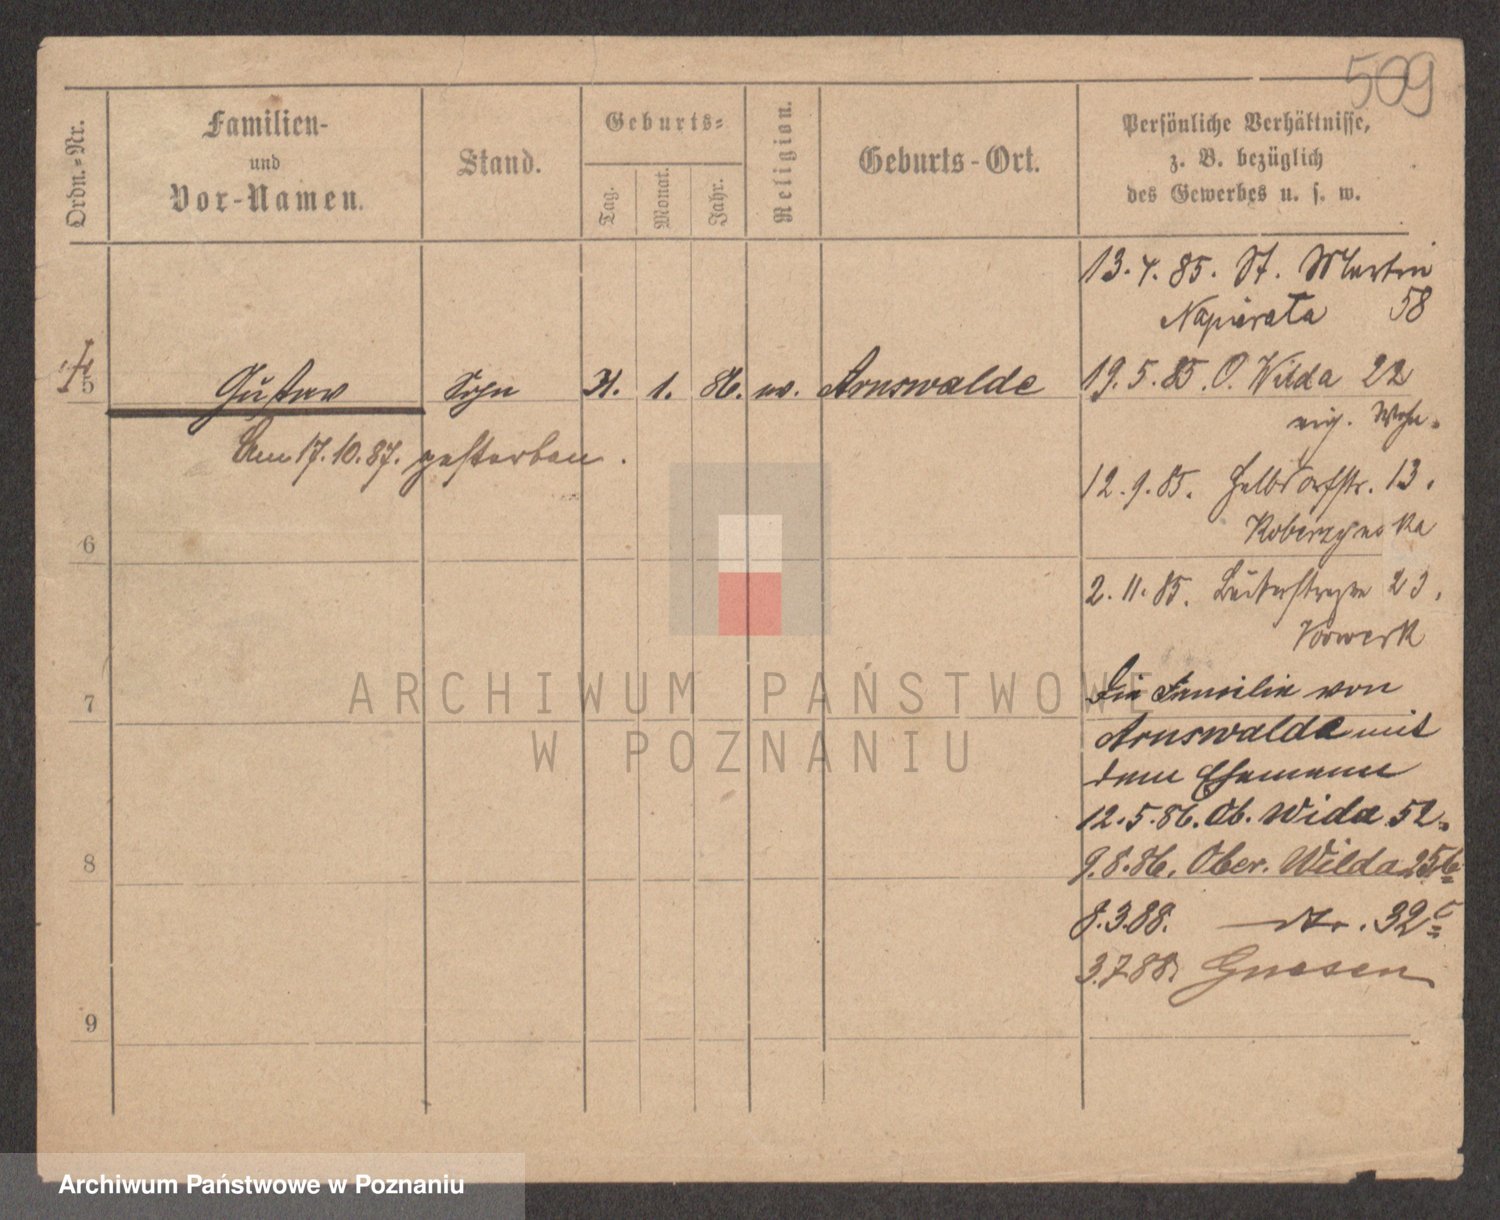 509
Ordn.-Nr.
Familien-
und
Vor-Namen.
Stand.
Geburts-
Tag.
Monat.
Jahr.
Religion.
Geburts-Ort.
Persönliche Verhältnisse,
z. B. bezüglich
des Gewerbes u. s. w.
13. 4. 85. St. Martin
58
5 Gustav Sohn 1. 86. ev. Arnswalde
19. 5. 85. O. Wilda 22
eig. Wohn.
Am 17. 10. 87. gestorben.
12. 9. 85. Halbdorfstr. 13.
6
2. 11. 85.
Vorwerk
7
Die Familie von
Arnswalde mit
dem Ehemann
12. 5. 86. Ob. Wida 52.
8
9. 8. 86. Ober. Wilda 25b
8. 3. 88. — dto. 32c
3. 7. 88. Gnesen
9
ARCHIWUM PAŃSTWOWE
W POZNANIU
Archiwum Państwowe w Poznaniu